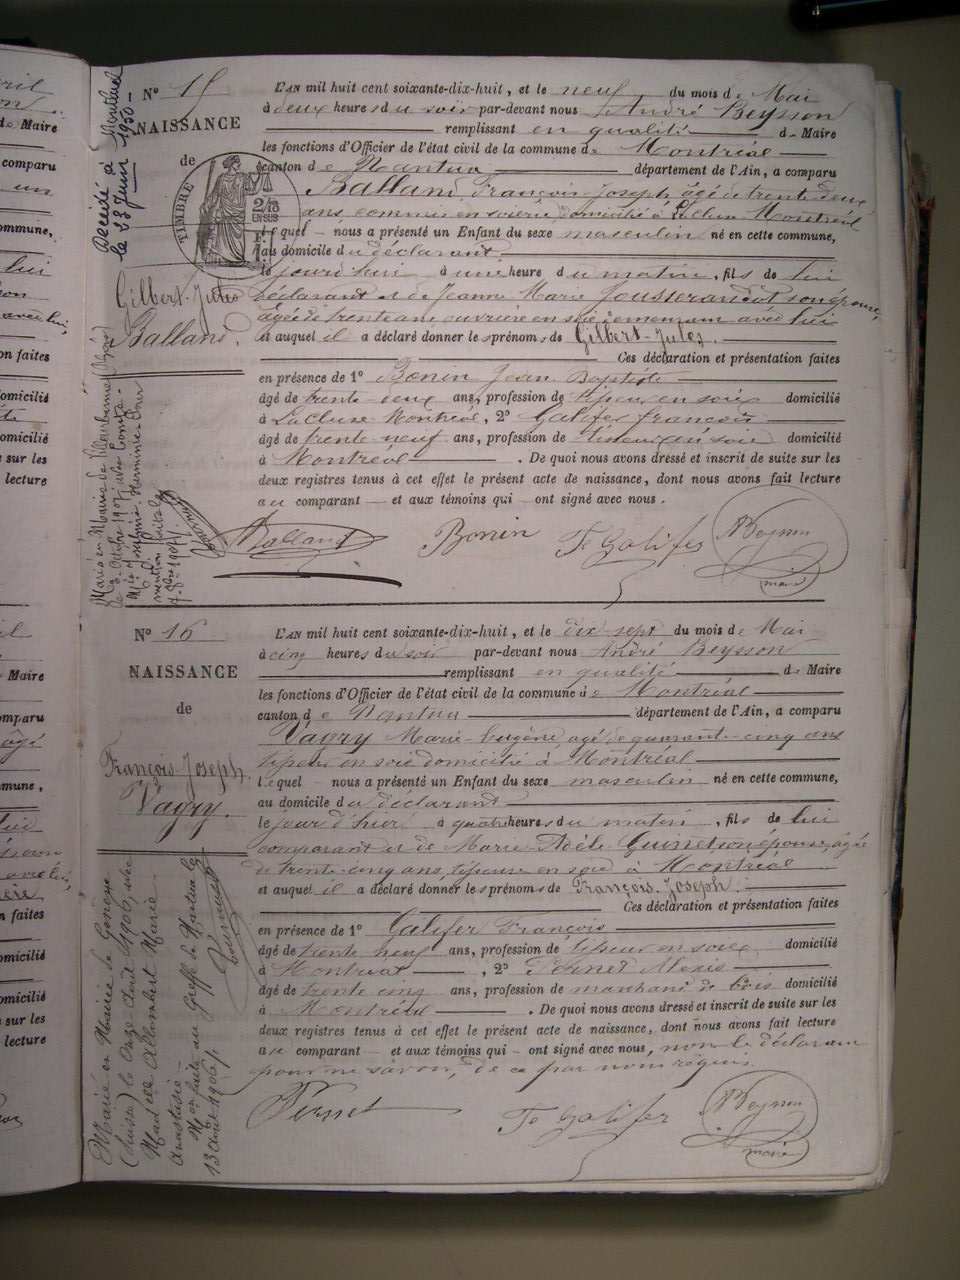 N° 15
NAISSANCE
de
TIMBRE
2/10
EN SUS
Gilbert-Jules
Balland
Décédé à Montluel
le 28 Juin 1950
L'AN mil huit cent soixante-dix-huit, et le neuf du mois de Mai
à deux heures du soir par-devant nous André Beysson
remplissant en qualité de Maire
les fonctions d'Officier de l'état civil de la commune de Montréal
canton de Nantua département de l'Ain, a comparu
Balland, François-Joseph âgé de trente deux
ans, commis en soierie domicilié à La Cluse Montréal
lequel nous a présenté un Enfant du sexe masculin né en cette commune,
au domicile du déclarant
le jourd'hui à une heure du matin, fils de lui
déclarant et de Jeanne Marie Jousserandot son épouse,
âgée de trente ans ouvrière en soie demeurant avec lui
et auquel il a déclaré donner les prénoms de Gilbert-Jules.
Ces déclaration et présentation faites
en présence de 1° Bonin Jean Baptiste
âgé de trente-deux ans, profession de tisseur en soie domicilié
à La Cluse Montréal, 2° Galifer François
âgé de trente neuf ans, profession de tisseur en soie domicilié
à Montréal. De quoi nous avons dressé et inscrit de suite sur les
deux registres tenus à cet effet le présent acte de naissance, dont nous avons fait lecture
au comparant et aux témoins qui ont signé avec nous.
Balland Bonin F Galifer A Beysson
maire
N° 16
NAISSANCE
de
François-Joseph
Vagry.
Marié en Mairie de Genève
(Suisse) le Onze Août 1906, avec
Allombert Marie
Anastasie
13 Août 1906
L'AN mil huit cent soixante-dix-huit, et le dix sept du mois de Mai
à cinq heures du soir par-devant nous André Beysson
remplissant en qualité de Maire
les fonctions d'Officier de l'état civil de la commune de Montréal
canton de Nantua département de l'Ain, a comparu
Vagry Marie-Eugène agé de quarante-cinq ans
tisseur en soie domicilié à Montréal
lequel nous a présenté un Enfant du sexe masculin né en cette commune,
au domicile du déclarant
le jour d'hier à quatre heures du matin, fils de lui
comparant et de Marie-Adèle son épouse, âgée
de trente-cinq ans, tisseuse en soie à Montréal
et auquel il a déclaré donner les prénoms de François-Joseph.
Ces déclaration et présentation faites
en présence de 1° Galifer François
âgé de trente neuf ans, profession de tisseur en soie domicilié
à Montréal, 2° Alexis
âgé de trente cinq ans, profession de marchand de bois domicilié
à Montréal. De quoi nous avons dressé et inscrit de suite sur les
deux registres tenus à cet effet le présent acte de naissance, dont nous avons fait lecture
au comparant et aux témoins qui ont signé avec nous, non le déclarant
pour ne savoir, de ce par nous réquis.
F Galifer A Beysson
maire